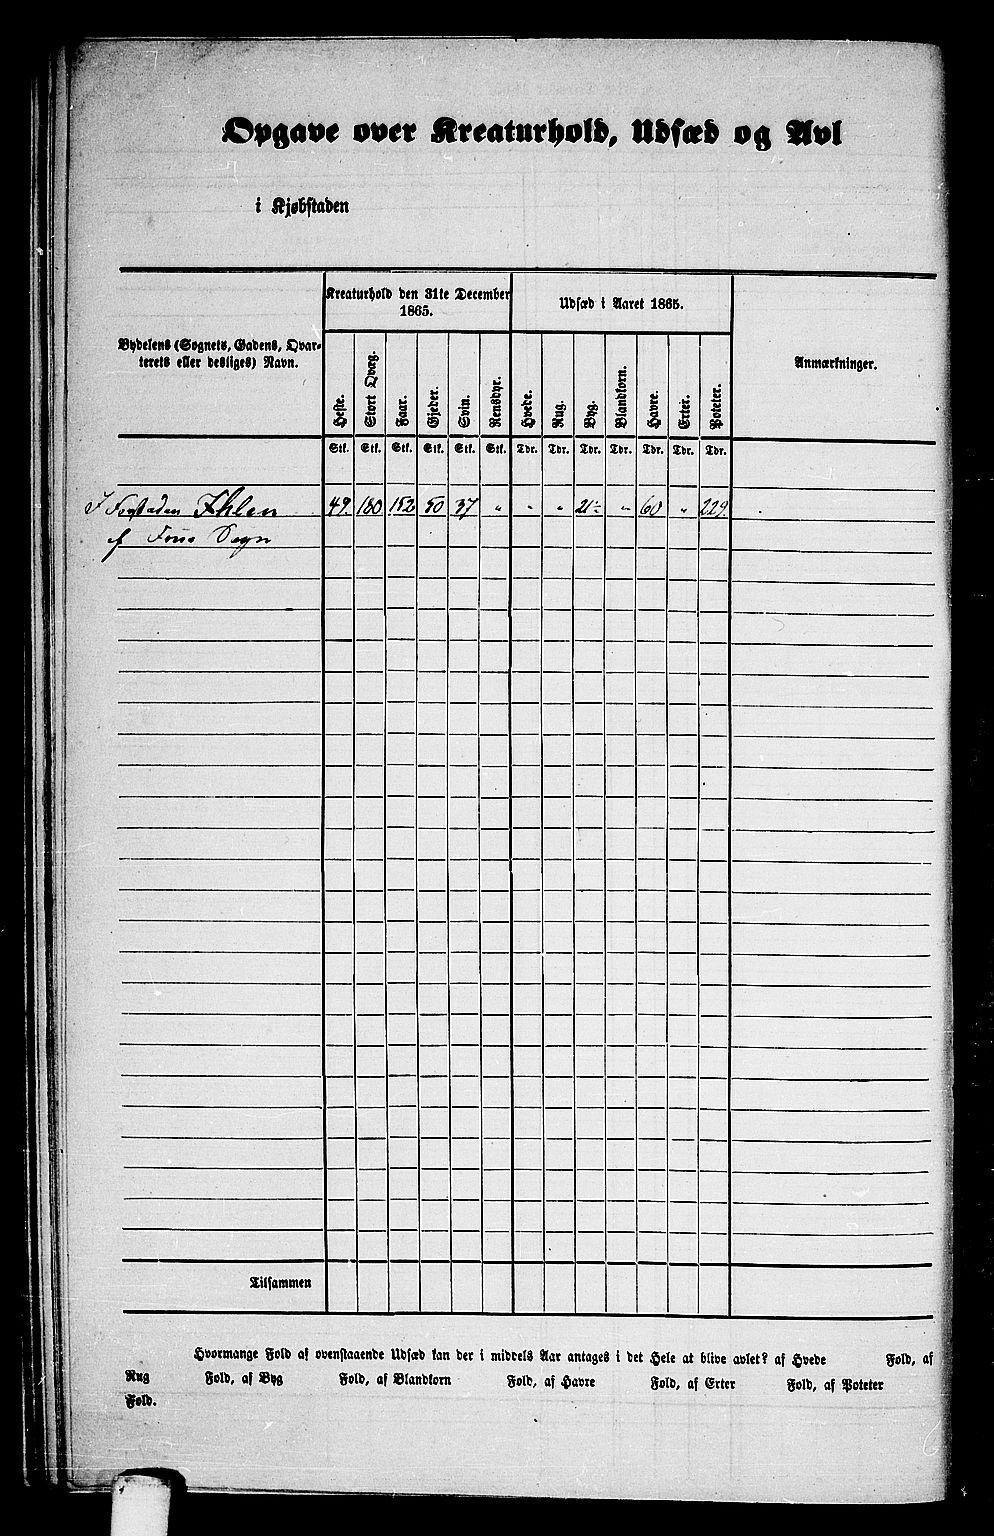 Opgave over Kreaturhold, Udsæd og Avl
i Kjøbstaden
Bydelens (Sognets, Gadens, Qvar-
terets eller desliges) Navn.
Kreaturhold den 31te December
1865.
Udsæd i Aaret 1865.
Anmærkninger.
Heste. Stort Qvæg. Faar. Gjeder. Svin. Rensdyr. Hvede. Rug. Byg. Blandkorn. Havre. Erter. Poteter.
Stk. Stk. Stk. Stk. Stk. Stk. Tdr. Tdr. Tdr. Tdr. Tdr. Tdr. Tdr.
I Forstaden Ihlen 49. 180 152 50 37 " " " 21½ " 60 " 229.
af Sogn
Tilsammen
Hvormange Fold af ovenstaaende Udsæd kan der i middels Aar antages i det Hele at blive avlet? af Hvede Fold, af
Rug Fold, af Byg Fold, af Blandkorn Fold, af Havre Fold, af Erter Fold, af Poteter
Fold.